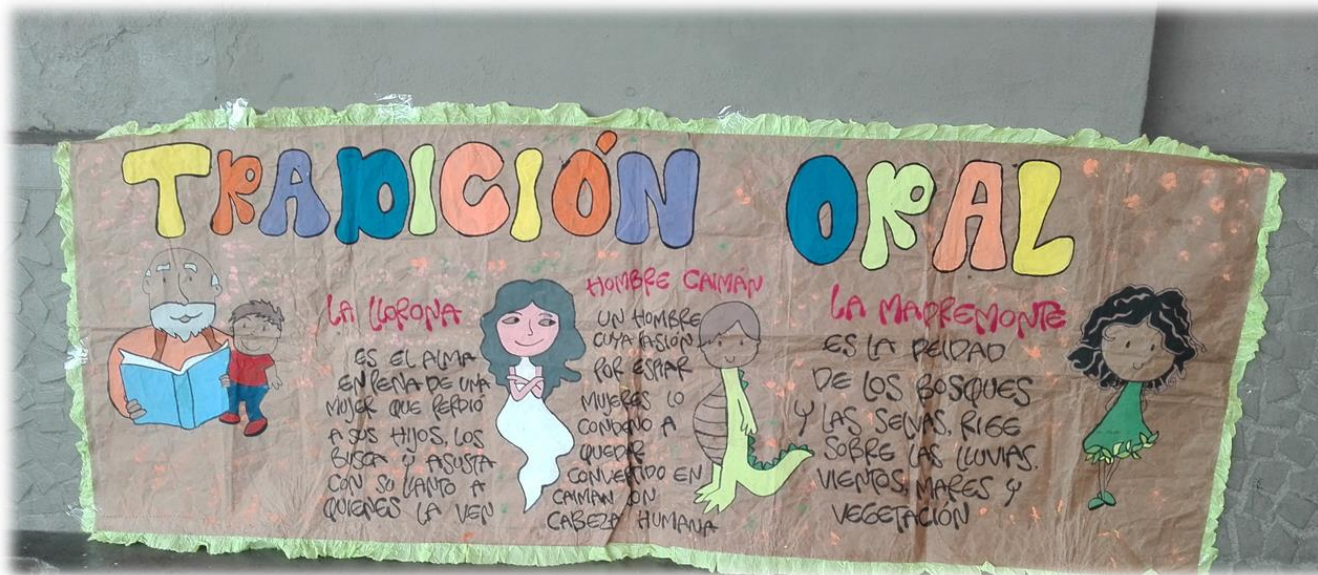 TRADICIÓN ORAL
LA LLORONA
ES EL ALMA
EN PENA DE UNA
MUJER QUE PERDIÓ
A SUS HIJOS, LOS
BUSCA Y ASUSTA
CON SU LLANTO A
QUIENES LA VEN
HOMBRE CAIMÁN
UN HOMBRE
CUYA PASIÓN
POR ESPIAR
MUJERES LO
CONDENO A
QUEDAR
CONVERTIDO EN
CAIMAN ON
CABEZA HUMANA
LA MADREMONTE
ES LA DEIDAD
DE LOS BOSQUES
Y LAS SELVAS, RIGE
SOBRE LAS LLUVIAS.
VIENTOS, MARES Y
VEGETACIÓN